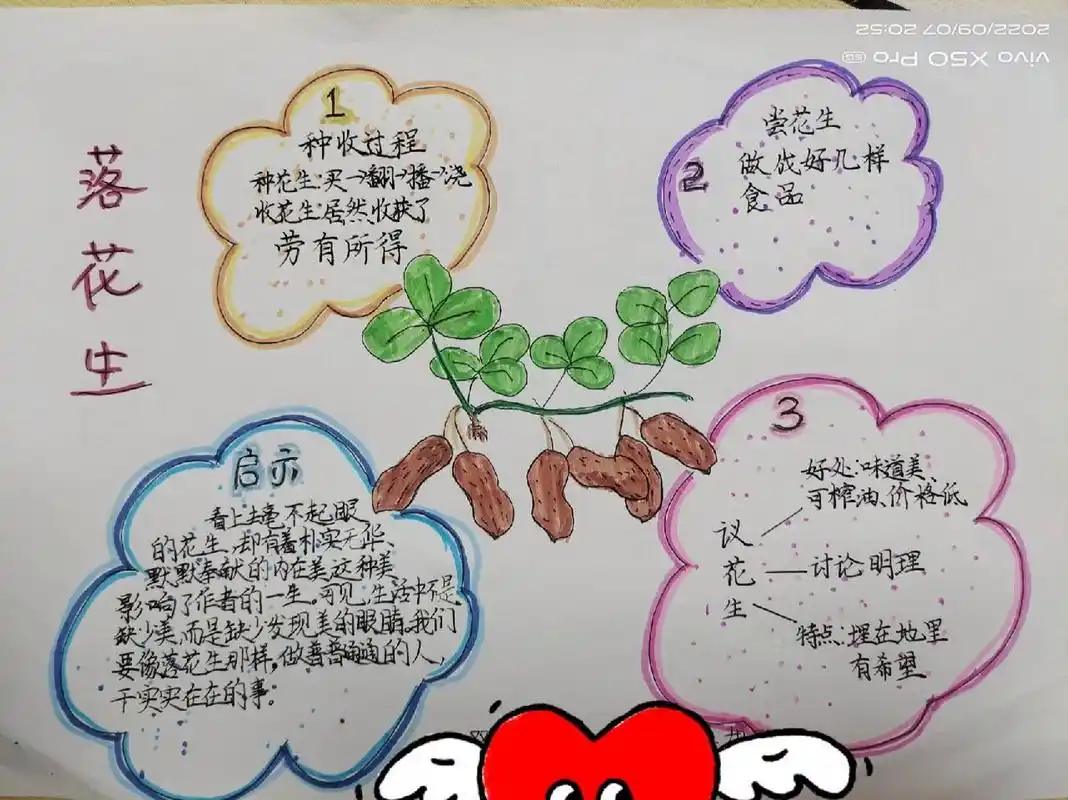 落花生
1
种收过程
种花生:买→翻→播→浇
收花生:居然收获了
劳有所得
2
尝花生
做成好几样
食品
3
议花生
好处:味道美、
可榨油、价格低
讨论明理
特点:埋在地里
有希望
启示
看上去毫不起眼
的花生,却有着朴实无华、
默默奉献的内在美,这种美
影响了作者的一生。可见,生活中不是
缺少美,而是缺少发现美的眼睛。我们
要像落花生那样,做普普通通的人,
干实实在在的事。
vivo X50 Pro 5G
2022/09/07 20:52